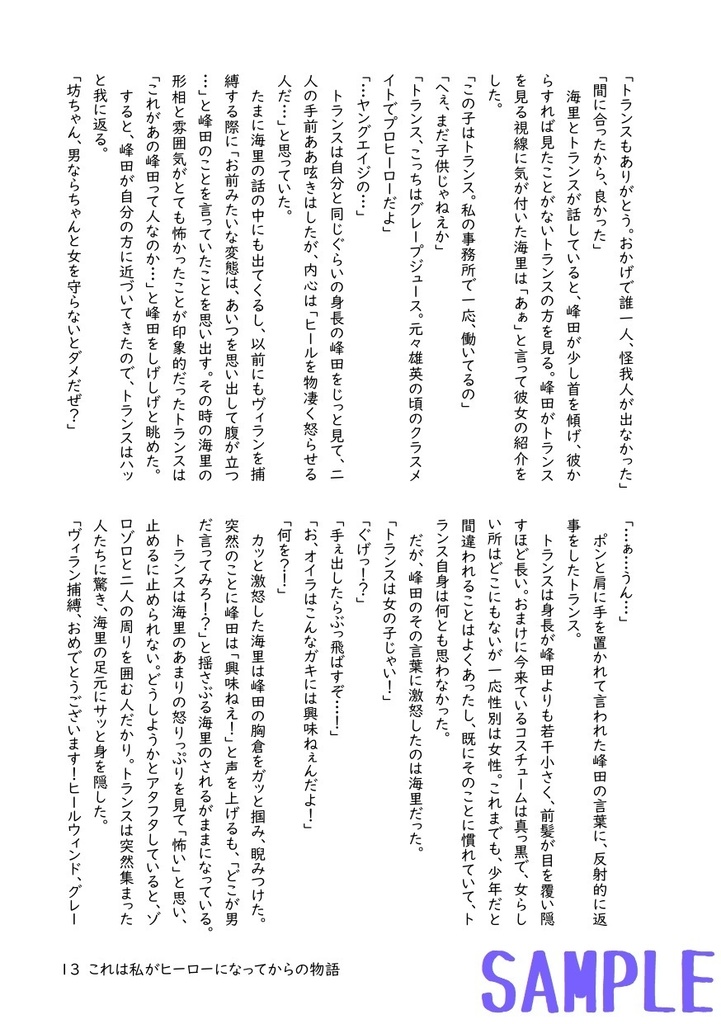 「トランスもありがとう。おかげで誰一人、怪我人が出なかった」
「間に合ったから、良かった」
　海里とトランスが話していると、峰田が少し首を傾げ、彼か
らすれば見たことがないトランスの方を見る。峰田がトランス
を見る視線に気が付いた海里は「あぁ」と言って彼女の紹介を
した。
「この子はトランス。私の事務所で一応、働いてるの」
「へぇ、まだ子供じゃねえか」
「トランス、こっちはグレープジュース。元々雄英の頃のクラスメ
イトでプロヒーローだよ」
「…ヤングエイジの…」
　トランスは自分と同じぐらいの身長の峰田をじっと見て、二
人の手前ああ呟きはしたが、内心は「ヒールを物凄く怒らせる
人だ…」と思っていた。
　たまに海里の話の中にも出てくるし、以前にもヴィランを捕
縛する際に「お前みたいな変態は、あいつを思い出して腹が立つ
…」と峰田のことを言っていたことを思い出す。その時の海里の
形相と雰囲気がとても怖かったことが印象的だったトランスは
「これがあの峰田って人なのか…」と峰田をしげしげと眺めた。
　すると、峰田が自分の方に近づいてきたので、トランスはハッ
と我に返る。
「坊ちゃん、男ならちゃんと女を守らないとダメだぜ？」
「…ぁ…うん…」
　ポンと肩に手を置かれて言われた峰田の言葉に、反射的に返
事をしたトランス。
　トランスは身長が峰田よりも若干小さく、前髪が目を覆い隠
すほど長い。おまけに今来ているコスチュームは真っ黒で、女らし
い所はどこにもないが一応性別は女性。これまでも、少年だと
間違われることはよくあったし、既にそのことに慣れていて、ト
ランス自身は何とも思わなかった。
　だが、峰田のその言葉に激怒したのは海里だった。
「トランスは女の子じゃい！」
「ぐげっ！？」
「手ぇ出したらぶっ飛ばすぞ…！」
「お、オイラはこんなガキには興味ねぇんだよ！」
「何を？！」
　カッと激怒した海里は峰田の胸倉をガッと掴み、睨みつけた。
突然のことに峰田は「興味ねえ！」と声を上げるも、「どこが男
だ言ってみろ！？」と揺さぶる海里のされるがままになっている。
　トランスは海里のあまりの怒りっぷりを見て「怖い」と思い、
止めるに止められない。どうしようかとアタフタしていると、ゾ
ロゾロと二人の周りを囲む人だかり。トランスは突然集まった
人たちに驚き、海里の足元にサッと身を隠した。
「ヴィラン捕縛、おめでとうございます！ヒールウィンド、グレー
13 これは私がヒーローになってからの物語
SAMPLE